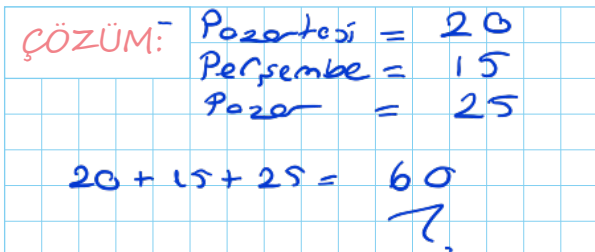 ÇÖZÜM:
Pazartesi = 20
Perşembe = 15
Pazar = 25
20 + 15 + 25 = 60